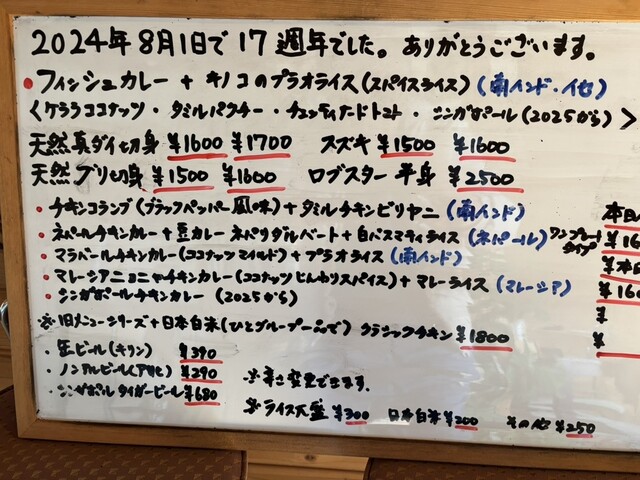 2024年8月1日で17週年でした。ありがとうございます。
・フィッシュカレー + キノコのプラオライス(スパイスライス)(南インド・イセ)
<ケララココナッツ・タミルパクチー・チェッティナードトマト・シンガポール(2025から)>
天然真ダイ切身 ¥1600 ¥1700 スズキ ¥1500 ¥1600
天然ブリ切身 ¥1500 ¥1600 ロブスター半身 ¥2500
・チキンコランブ(ブラックペッパー風味)+タミルチキンビリヤニ(南インド)
・ネパールチキンカレー+豆カレー ネパリダルバート+白バスマティライス(ネパール)ワンプレートタイプ
・マラバールチキンカレー(ココナッツマイルド)+プラオライス(南インド)
・マレーシアニョニャチキンカレー(ココナッツじんわりスパイス)+マレーライス(マレーシア)
・シンガポールチキンカレー(2025から)
※旧メニューシリーズ+日本白米(ひとグループ一品で)クラシックチキン¥1800
・缶ビール(キリン) ¥390
・ノンアルビール(アサヒ) ¥290
・シンガポール タイガービール ¥680
※辛さ変更できます。
※ライス大盛 ¥300 日本白米 ¥200 その他 ¥250
本日
¥16
¥本日
¥160
¥
¥